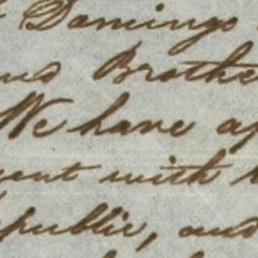 Domingo
and Brothe
We have ap
ment with
epublic, and